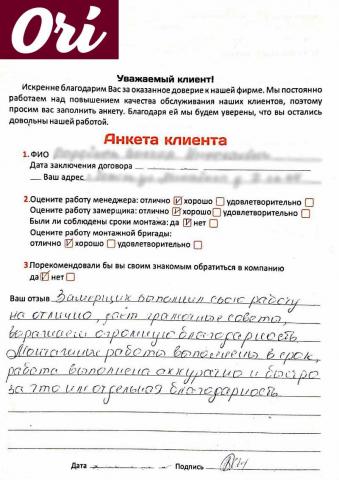 Ori
Уважаемый клиент!
Искренне благодарим Вас за оказанное доверие к нашей фирме. Мы постоянно
работаем над повышением качества обслуживания наших клиентов, поэтому
просим вас заполнить анкету. Благодаря ей мы будем уверены, что вы остались
довольны нашей работой.
Анкета клиента
1. ФИО
Дата заключения договора
Ваш адрес
2. Оцените работу менеджера: отлично хорошо удовлетворительно
Оцените работу замерщика: отлично хорошо удовлетворительно
Были ли соблюдены сроки монтажа: да нет
Оцените работу монтажной бригады:
отлично хорошо удовлетворительно
3. Порекомендовали бы вы своим знакомым обратиться в компанию
да нет
Ваш отзыв Замерщик выполнил свою работу
на отлично, даёт грамотные советы,
выражаем огромную благодарность.
Монтажные работы выполнены в срок,
работа выполнена аккуратно и быстро
за что им отдельная благодарность
Дата Подпись